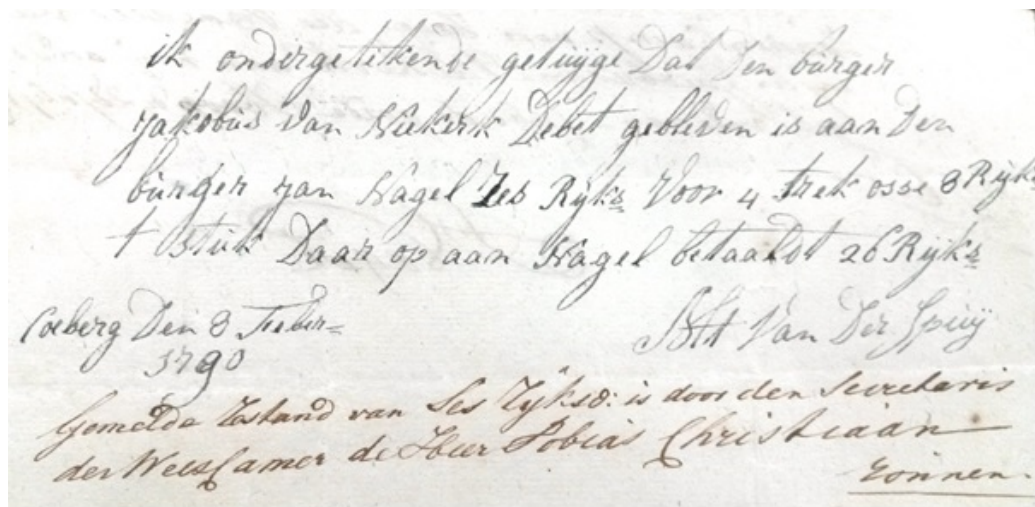 ik ondirgetekende getuijge Dat Den burger
Jakobus Van Niekerk Debet gebleven is aan Den
burger Jan Nagel Zes Rijks Voor 4 trek osse 8 Rijks
t stuk Daar op aan Nagel betaaldt 26 Rijks
Coeberg Den 8 Feber=
1790
Van Der Spuij
Gemelde Restand van Ses Rijksd: is door den Secretaris
der WeesCamer de Heer Tobias Christiaan
Ronnen.